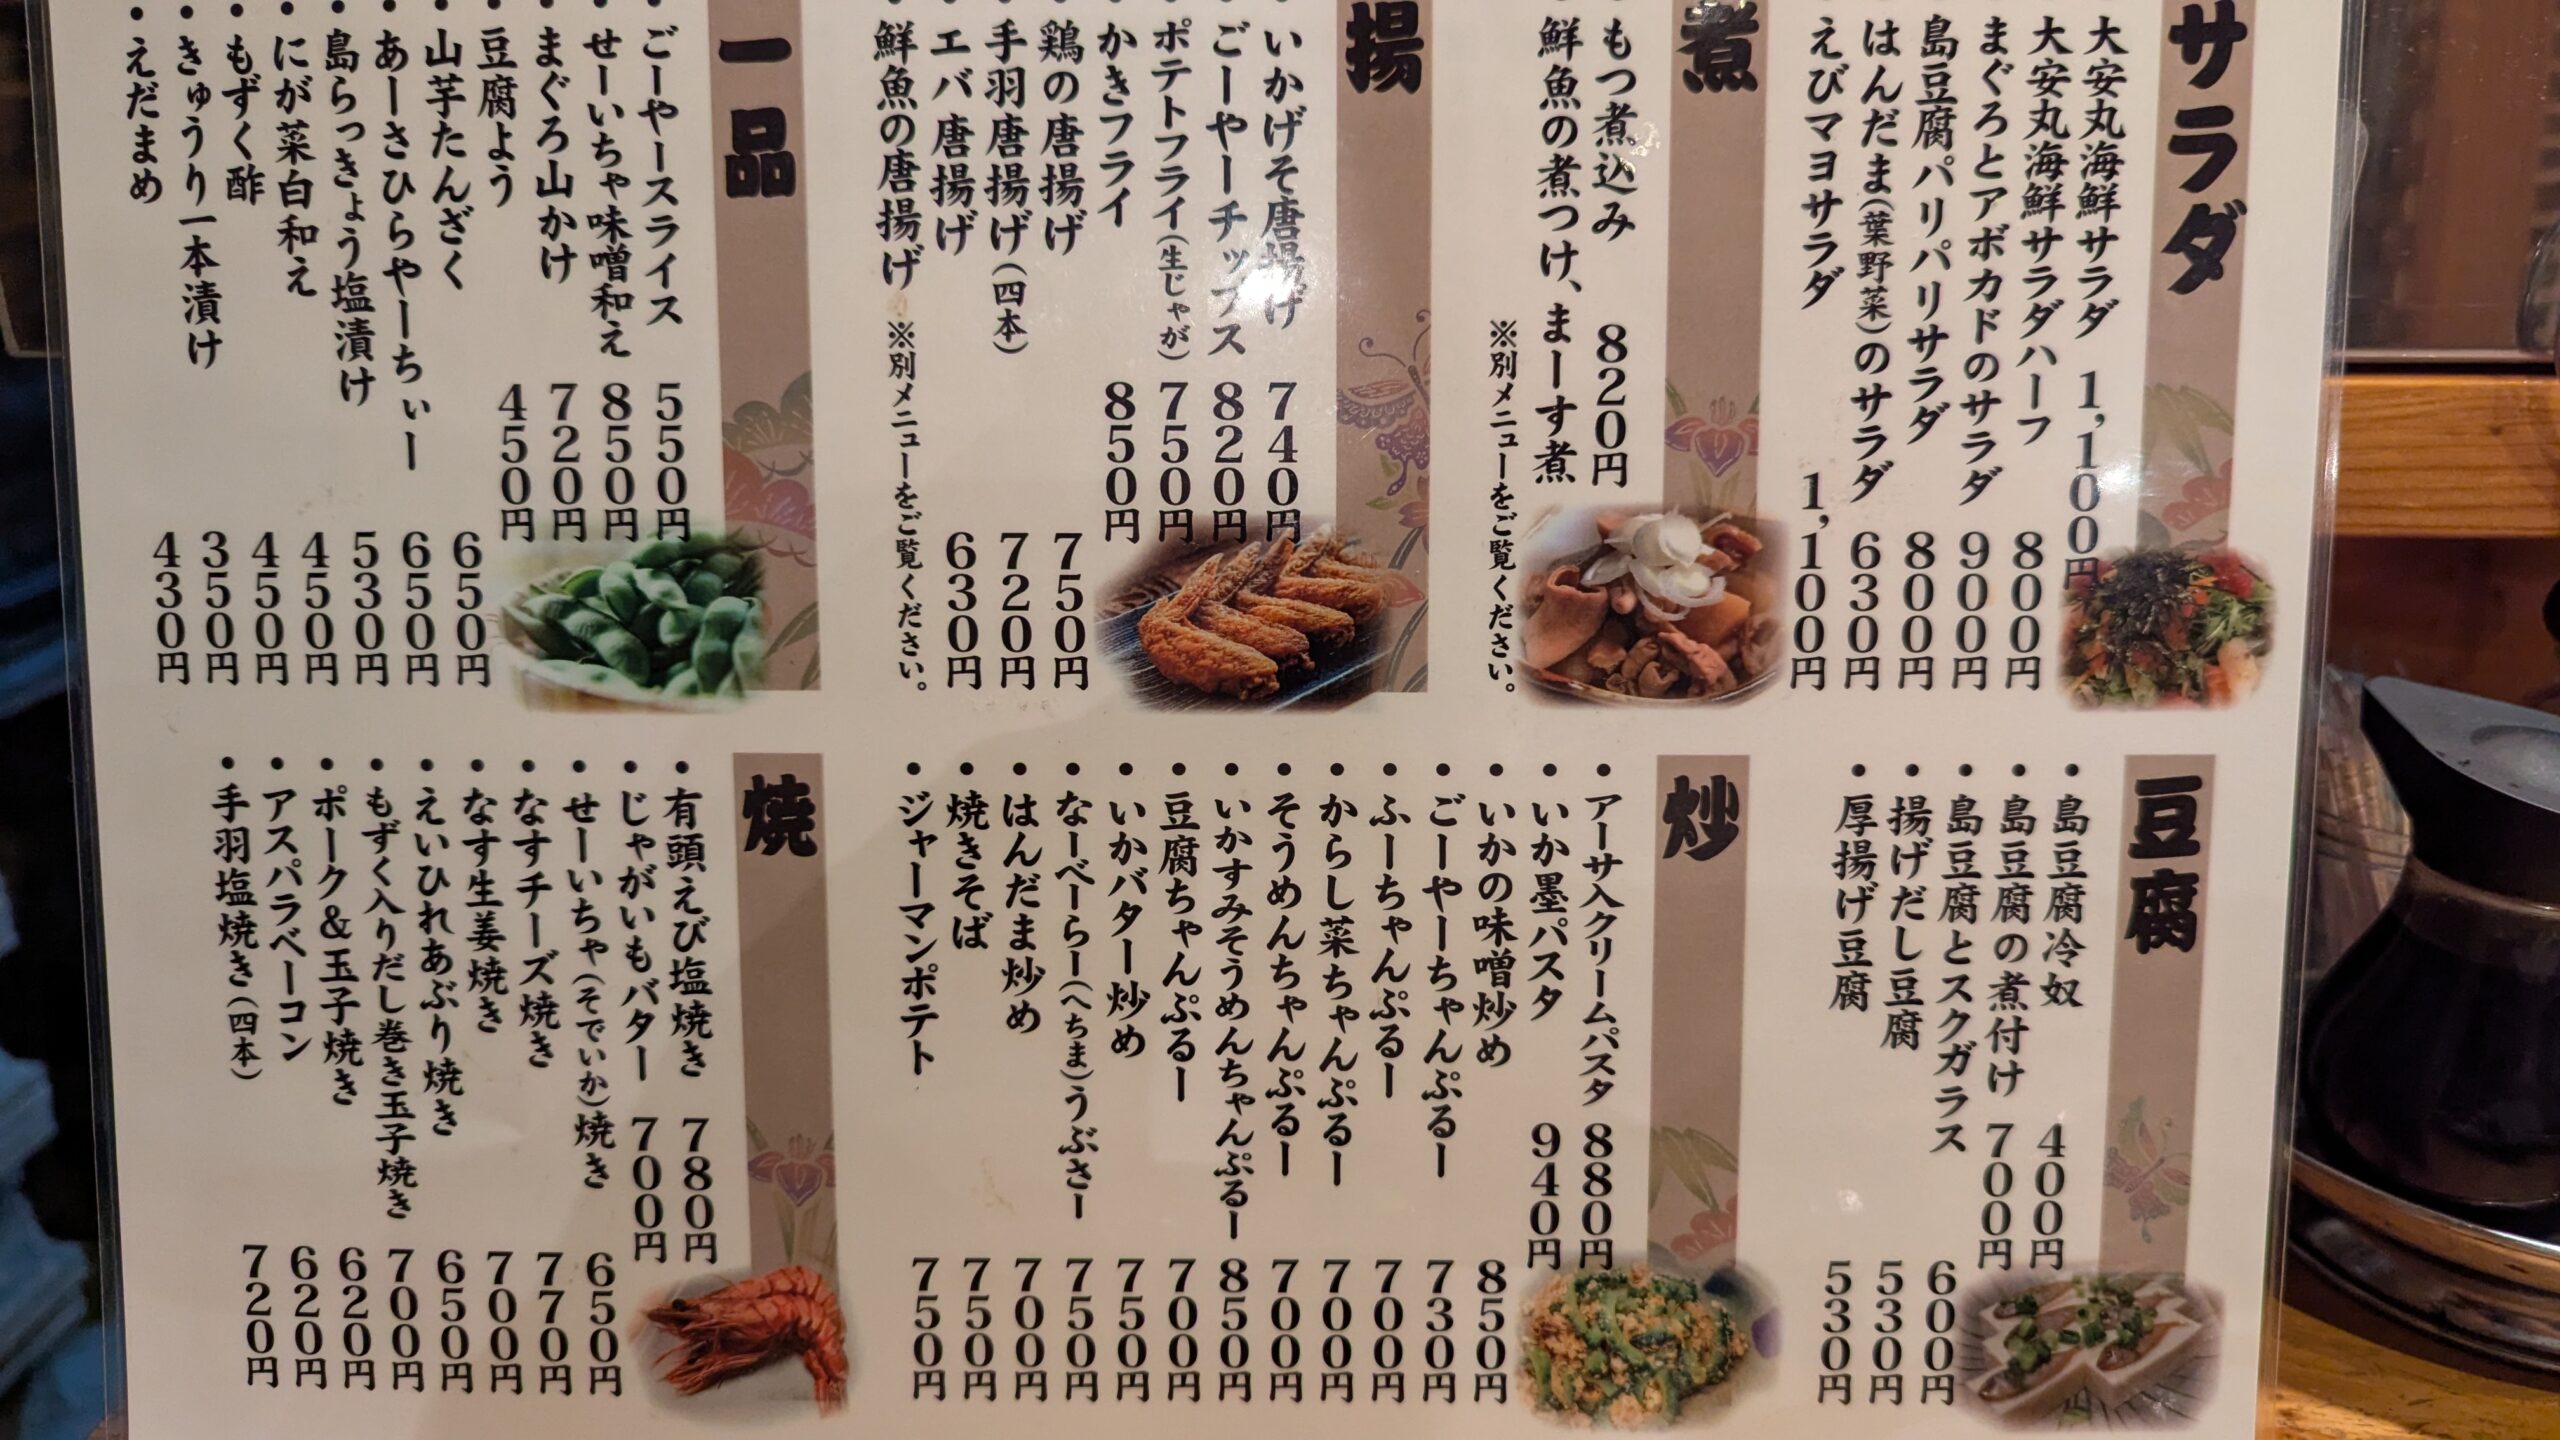 サラダ
・大安丸海鮮サラダ 1,100円
・大安丸海鮮サラダハーフ 800円
・まぐろとアボカドのサラダ 900円
・島豆腐パリパリサラダ 800円
・はんだま(葉野菜)のサラダ 630円
・えびマヨサラダ 1,100円
煮
・もつ煮込み 820円
・鮮魚の煮つけ、まーす煮
※別メニューをご覧ください。
揚
・いかげそ唐揚げ 740円
・ごーやーチップス 820円
・ポテトフライ(生じゃが) 750円
・かきフライ 850円
・鶏の唐揚げ 750円
・手羽唐揚げ(四本) 720円
・エバ唐揚げ 630円
・鮮魚の唐揚げ ※別メニューをご覧ください。
一品
・ごーやースライス 550円
・せーいちゃ味噌和え 850円
・まぐろ山かけ 720円
・豆腐よう 450円
・山芋たんざく 650円
・あーさひらやーちぃー 650円
・島らっきょう塩漬け 530円
・にが菜白和え 450円
・もずく酢 450円
・きゅうり一本漬け 350円
・えだまめ 430円
豆腐
・島豆腐冷奴 400円
・島豆腐の煮付け 700円
・島豆腐とスクガラス 600円
・揚げだし豆腐 530円
・厚揚げ豆腐 530円
炒
・アーサ入クリームパスタ 880円
・いか墨パスタ 940円
・いかの味噌炒め 850円
・ごーやーちゃんぷるー 730円
・ふーちゃんぷるー 700円
・からし菜ちゃんぷるー 700円
・そうめんちゃんぷるー 700円
・いかすみそうめんちゃんぷるー 850円
・豆腐ちゃんぷるー 700円
・いかバター炒め 750円
・なーべーらー(へちま)うぶさー 750円
・はんだま炒め 700円
・焼きそば 750円
・ジャーマンポテト 750円
焼
・有頭えび塩焼き 780円
・じゃがいもバター 700円
・せーいちゃ(そでいか)焼き 650円
・なすチーズ焼き 770円
・なす生姜焼き 700円
・えいひれあぶり焼き 650円
・もずく入りだし巻き玉子焼き 700円
・ポーク&玉子焼き 620円
・アスパラベーコン 620円
・手羽塩焼き(四本) 720円